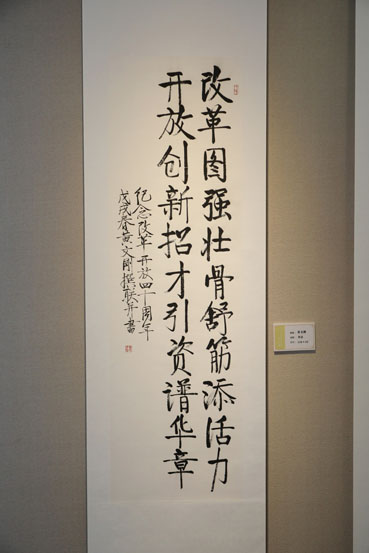 改革图强壮骨舒筋添活力
开放创新招才引资谱华章
纪念改革开放四十周年
戊戌春黄文刚撰联并书